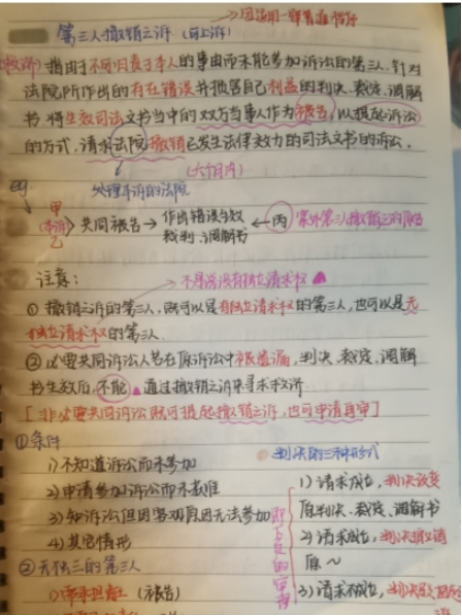 →适用一审普通程序
第三人撤销之诉（可上诉）
指由于不可归责于本人的事由而未能参加诉讼的第三人，针对
法院所作出的存在错误并损害自己利益的判决、裁定、调解
书，将生效司法文书当中的双方当事人作为被告，以提起诉讼
的方式，请求法院撤销已发生法律效力的司法文书的诉讼。
（六个月内）
处理本诉的法院
eg
甲
（本诉）
乙
共同被告→作出错误生效
裁判、调解书
←丙
案外第三人撤销之诉原告
注意：
不是说没有独立请求权
① 撤销之诉的第三人，既可以是有独立请求权的第三人，也可以是无
独立请求权的第三人
② 必要共同诉讼人若在原诉讼中被遗漏，判决、裁定、调解
书生效后，不能通过撤销之诉寻求救济
[非必要共同诉讼既可提起撤销之诉，也可申请再审]
①条件
1）不知道诉讼而未参加
2）申请参加诉讼而未获准
3）知诉讼但因客观原因无法参加
4）其它情形
②无独三的第三人
1）（被告）
判决的三种形式
1）请求成立，判决改变
原判决、裁定、调解书
2）请求成立，判决撤销
原～
3）请求不成立，判决驳回